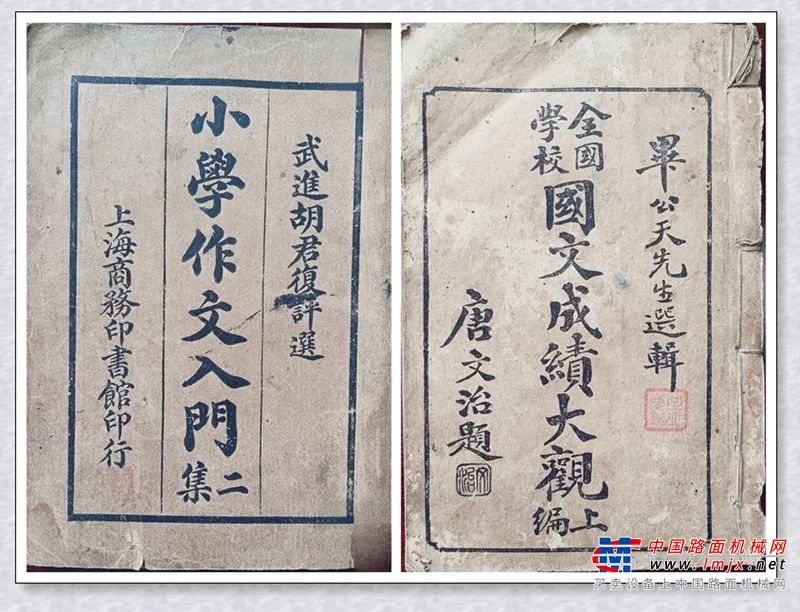 武進胡君復評選
小學作文入門二集
上海商務印書館印行
畢公天先生選輯
全國學校國文成績大觀上編
唐文治題
文治
中国路面机械网
www.lmjx.net
买卖设备上中国路面机械网